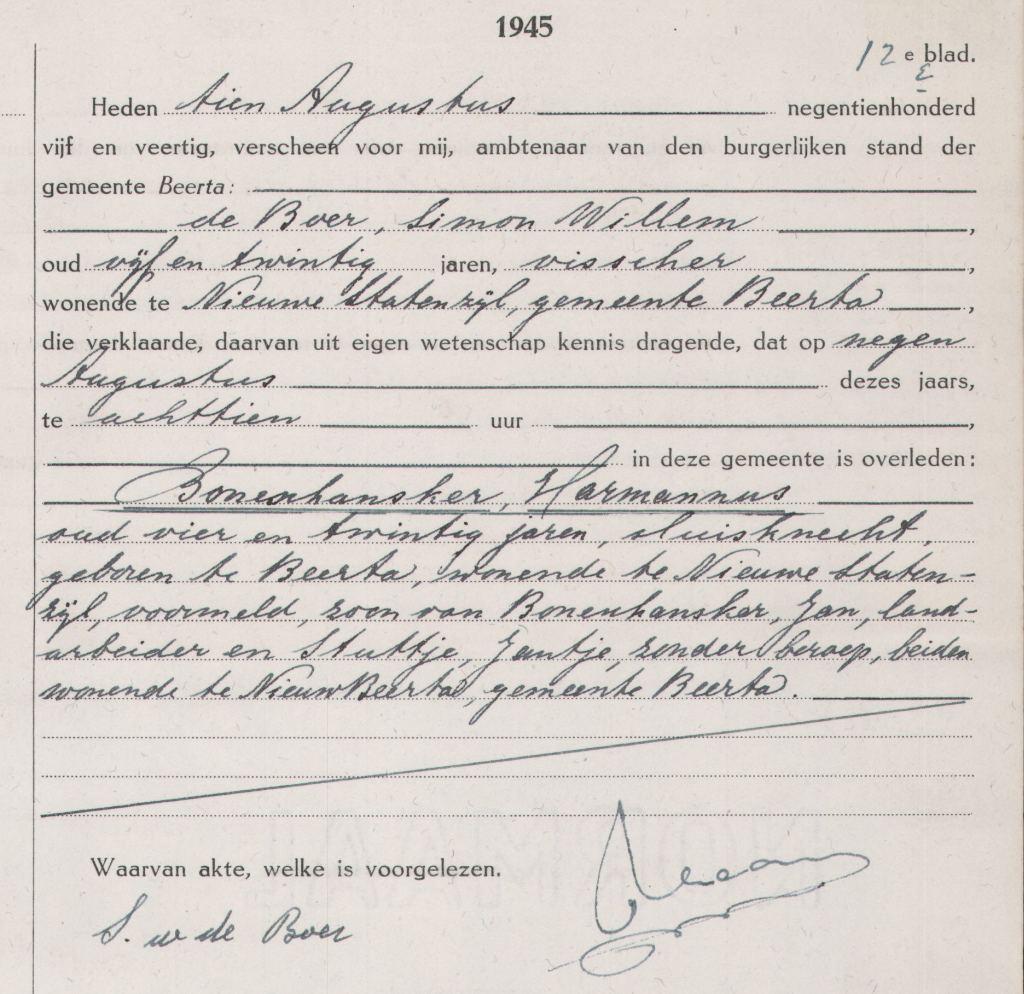 1945
12 e blad.
Heden tien Augustus negentienhonderd
vijf en veertig, verscheen voor mij, ambtenaar van den burgerlijken stand der
gemeente Beerta:
de Boer, Simon Willem,
oud vijf en twintig jaren, visscher,
wonende te Nieuwe Statenzijl, gemeente Beerta,
die verklaarde, daarvan uit eigen wetenschap kennis dragende, dat op negen
Augustus dezes jaars,
te achttien uur,
in deze gemeente is overleden:
Bonenhansker, Harmannus
oud vier en twintig jaren, sluisknecht,
geboren te Beerta, wonende te Nieuwe Staten-
zijl, voormeld, zoon van Bonenhansker, Jan, land-
arbeider en Stuttje, Jantje, zonder beroep, beiden
wonende te NieuwBeerta, gemeente Beerta.
Waarvan akte, welke is voorgelezen.
S. w de Boer